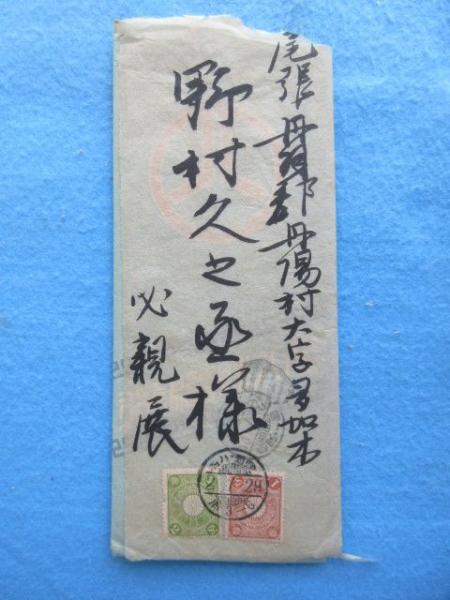 尾張丹羽郡丹陽村大字多加木
野村久之丞様
必親展
28